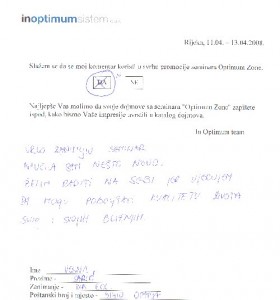 inoptimumsistem
Rijeka, 11.04. – 13.04.2008.
Slažem se da se moj komentar koristi u svrhu promocije seminara Optimum Zone.
DA NE
Najljepše Vas molimo da svoje dojmove sa seminara "Optimum Zona" zapišete
ispod, kako bismo Vaše impresije uvrstili u katalog dojmova.
In Optimum team
VRLO ZANIMLJIV SEMINAR
NAUČILA SAM NEŠTO NOVO.
ŽELIM RADITI NA SEBI JER VJERUJEM
DA MOGU POBOLJŠATI KVALITETU ŽIVOTA
SVOG I SVOJIH BLIŽNJIH.
Ime -
Prezime -
Zanimanje -
Poštanski broj i mjesto -